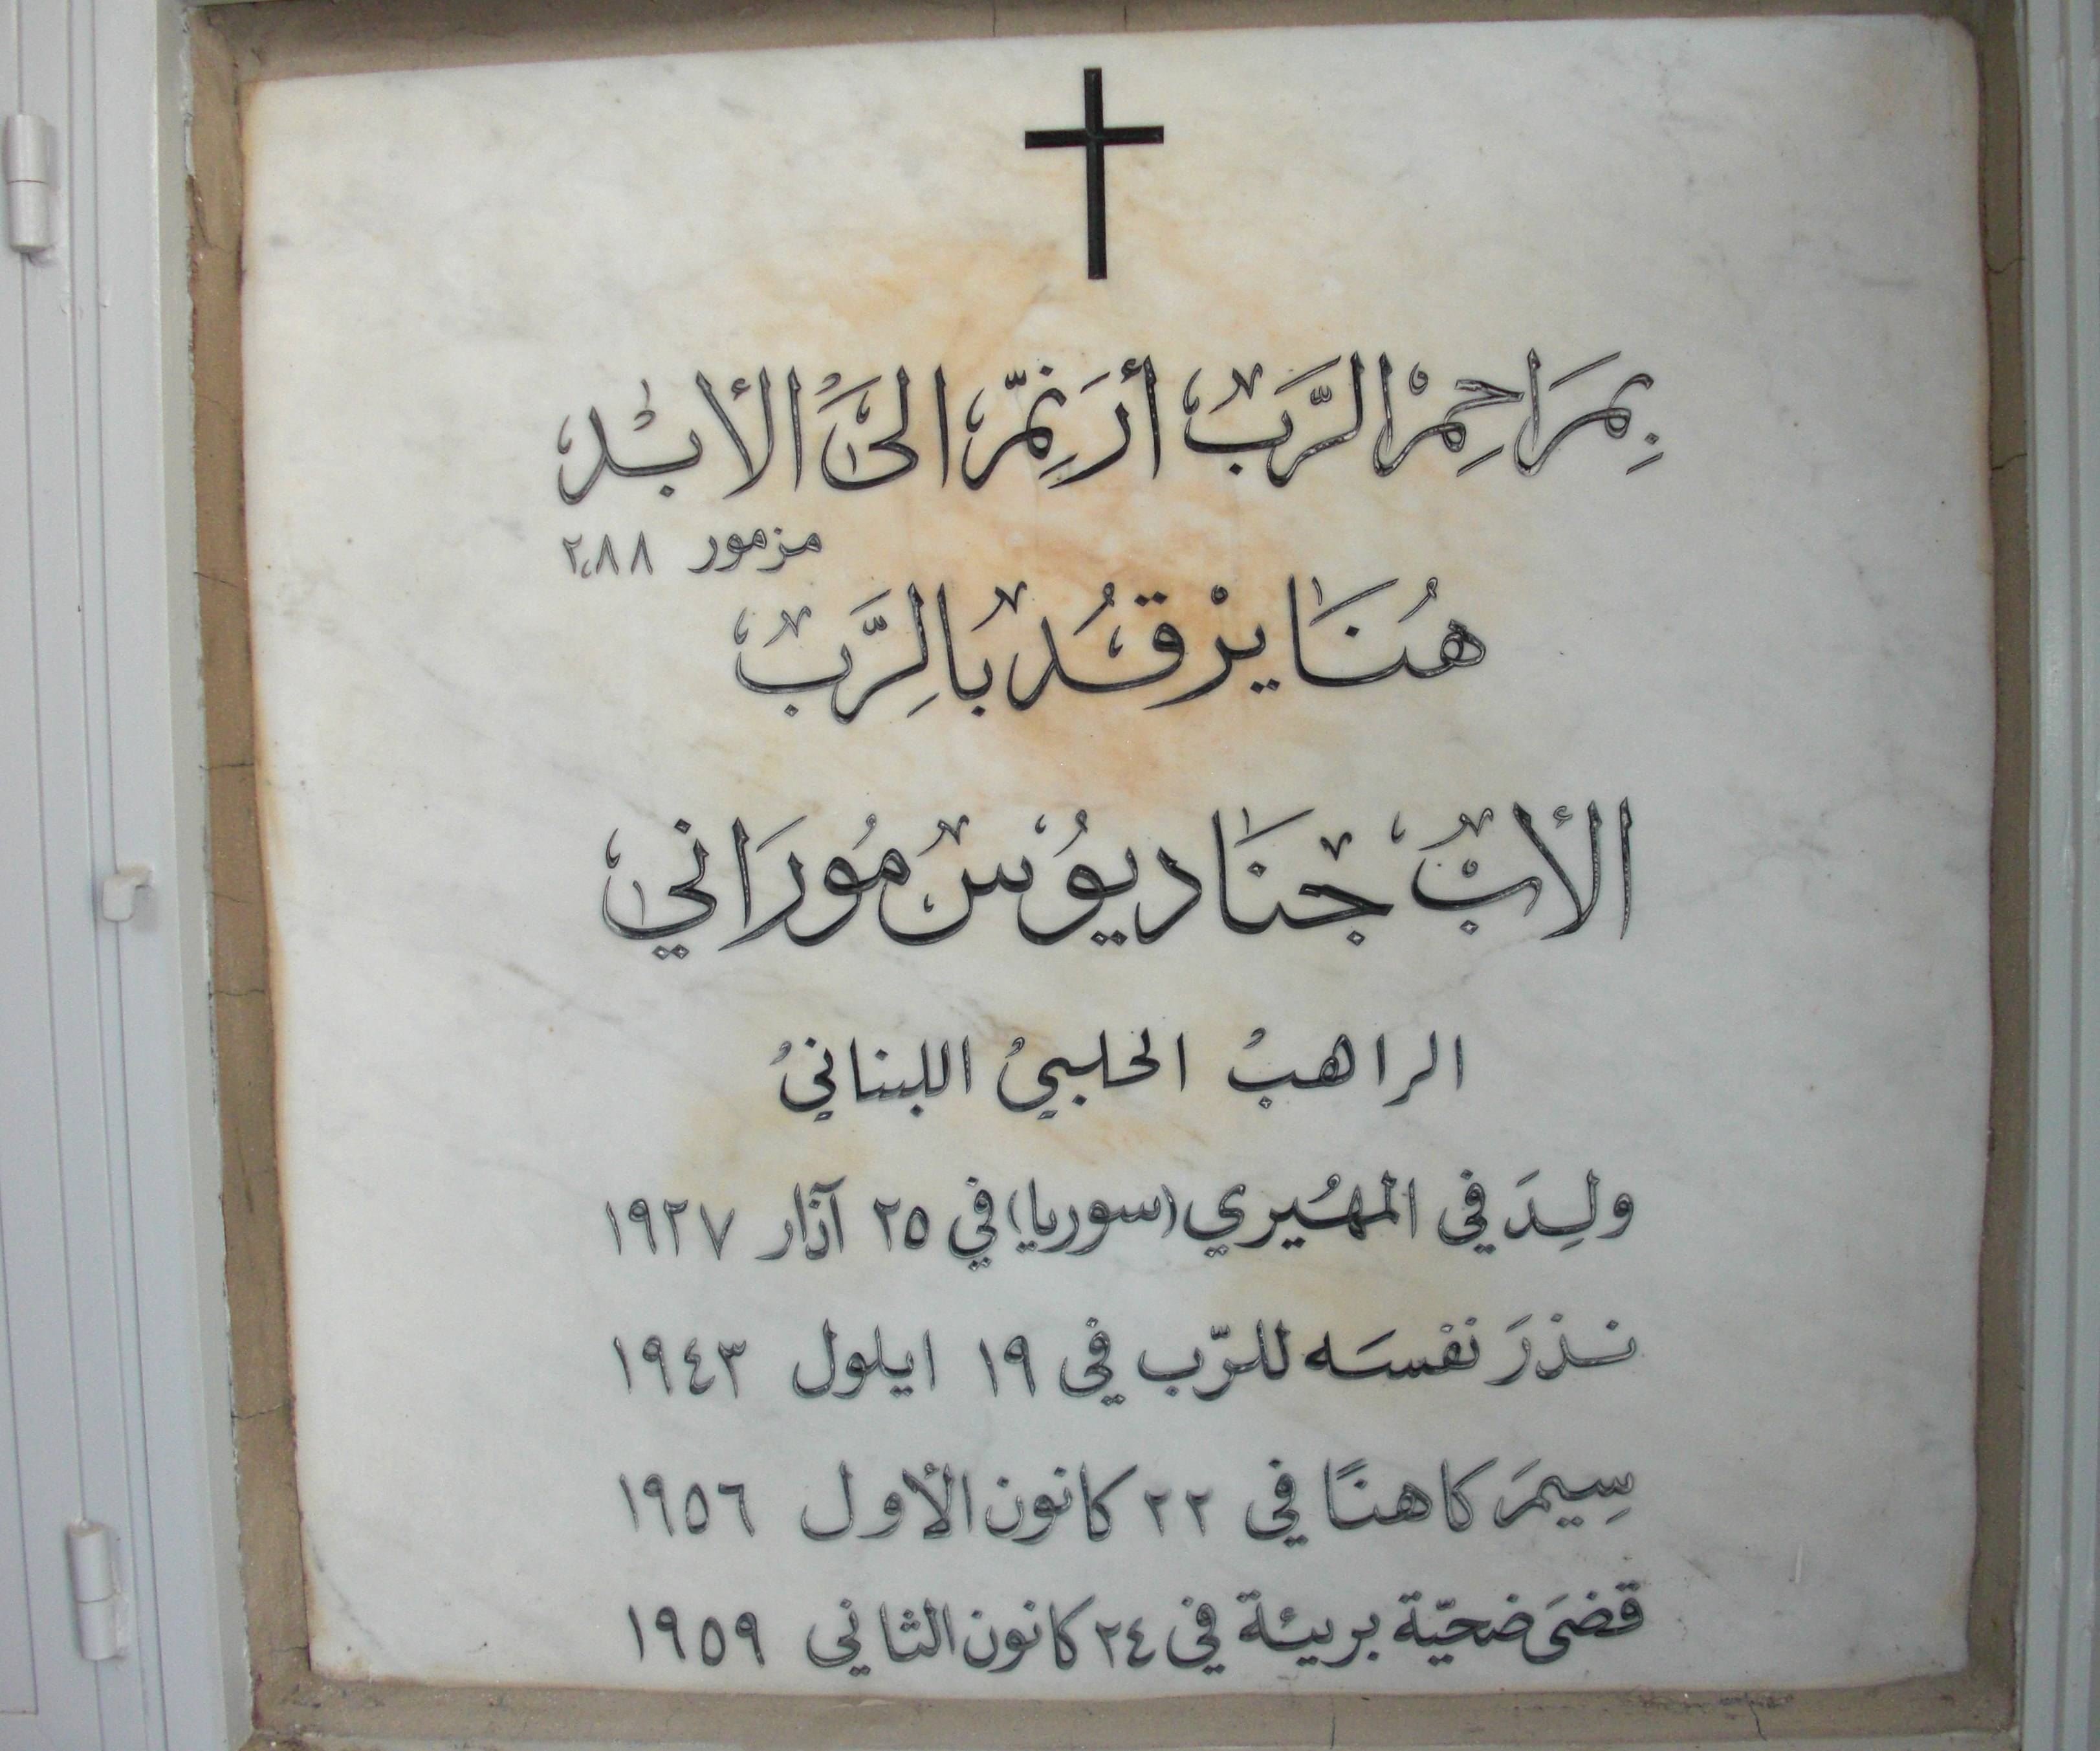 بِمَرَاحِمْ الرَّبّ أُرَنِّمُ الىَ الأبَدْ
مزمور ٢،٨٨
هُنَا يرْقُدُ بَالِرَّبّ
الأبْ جنَاديُوسْ مُورَاني
الراهبُ الحلبيُ اللبنانيُ
ولِدَ في المهُيري (سوريا) في ٢٥ آذار ١٩٢٧
نذرَ نفسَه للرّب في ١٩ ايلول ١٩٤٣
سِيمَ كاهنًا في ٢٢ كانون الأول ١٩٥٦
قضىَ ضحيّة بريئة في ٢٤ كانون الثاني ١٩٥٩